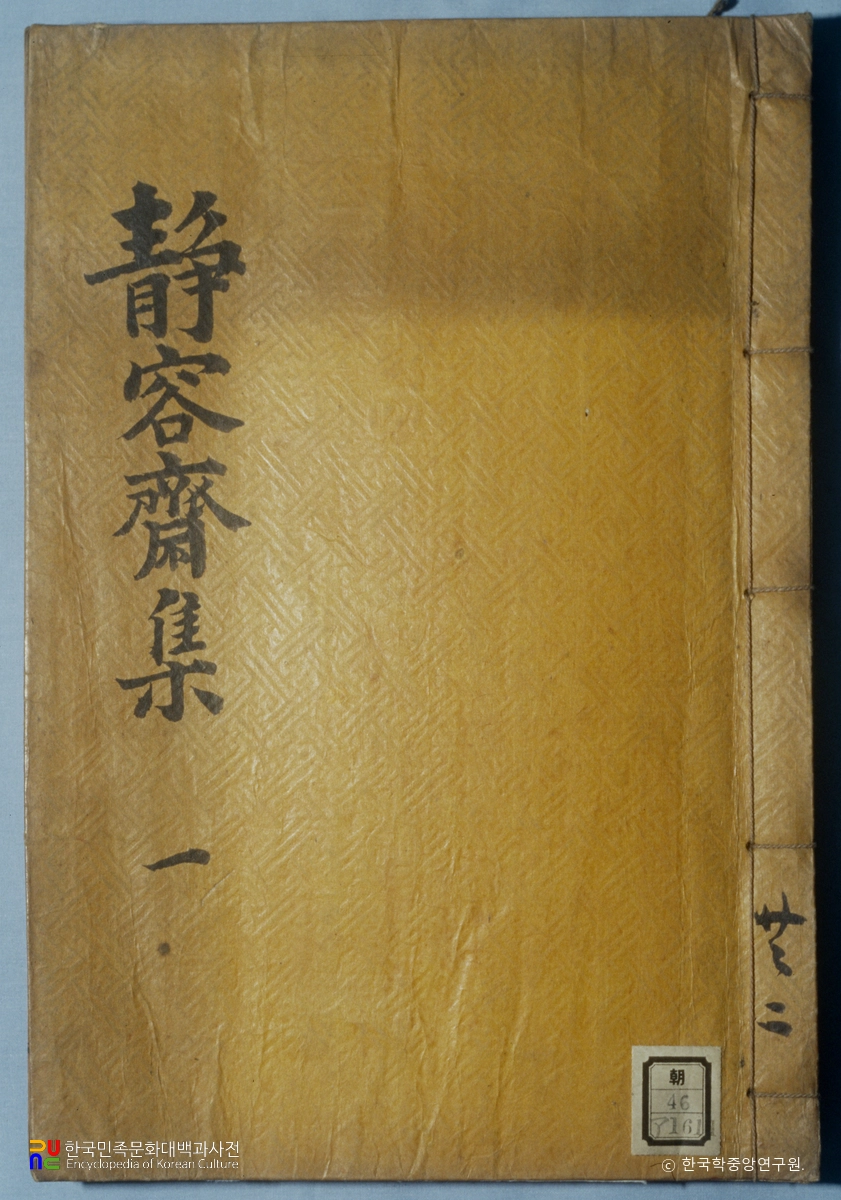 静容齋集 一
共二
朝
46
ア161
한국민족문화대백과사전
Encyclopedia of Korean Culture
© 한국학중앙연구원.